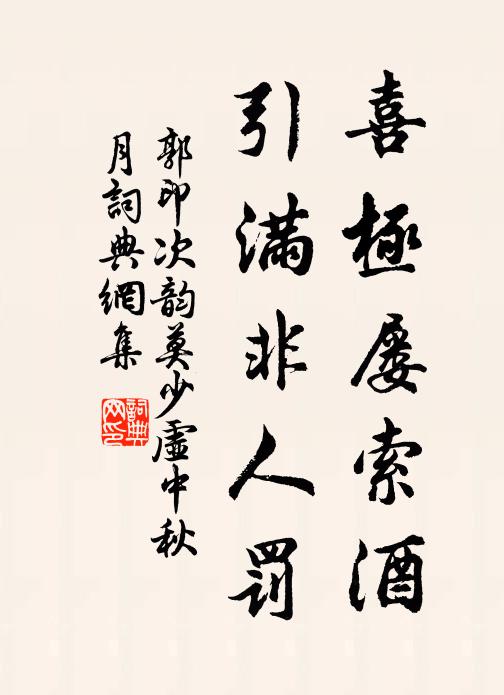 喜極屢索酒
引滿非人罰
郭印次韵莫少虛中秋
月詞典網集
詞典
网印